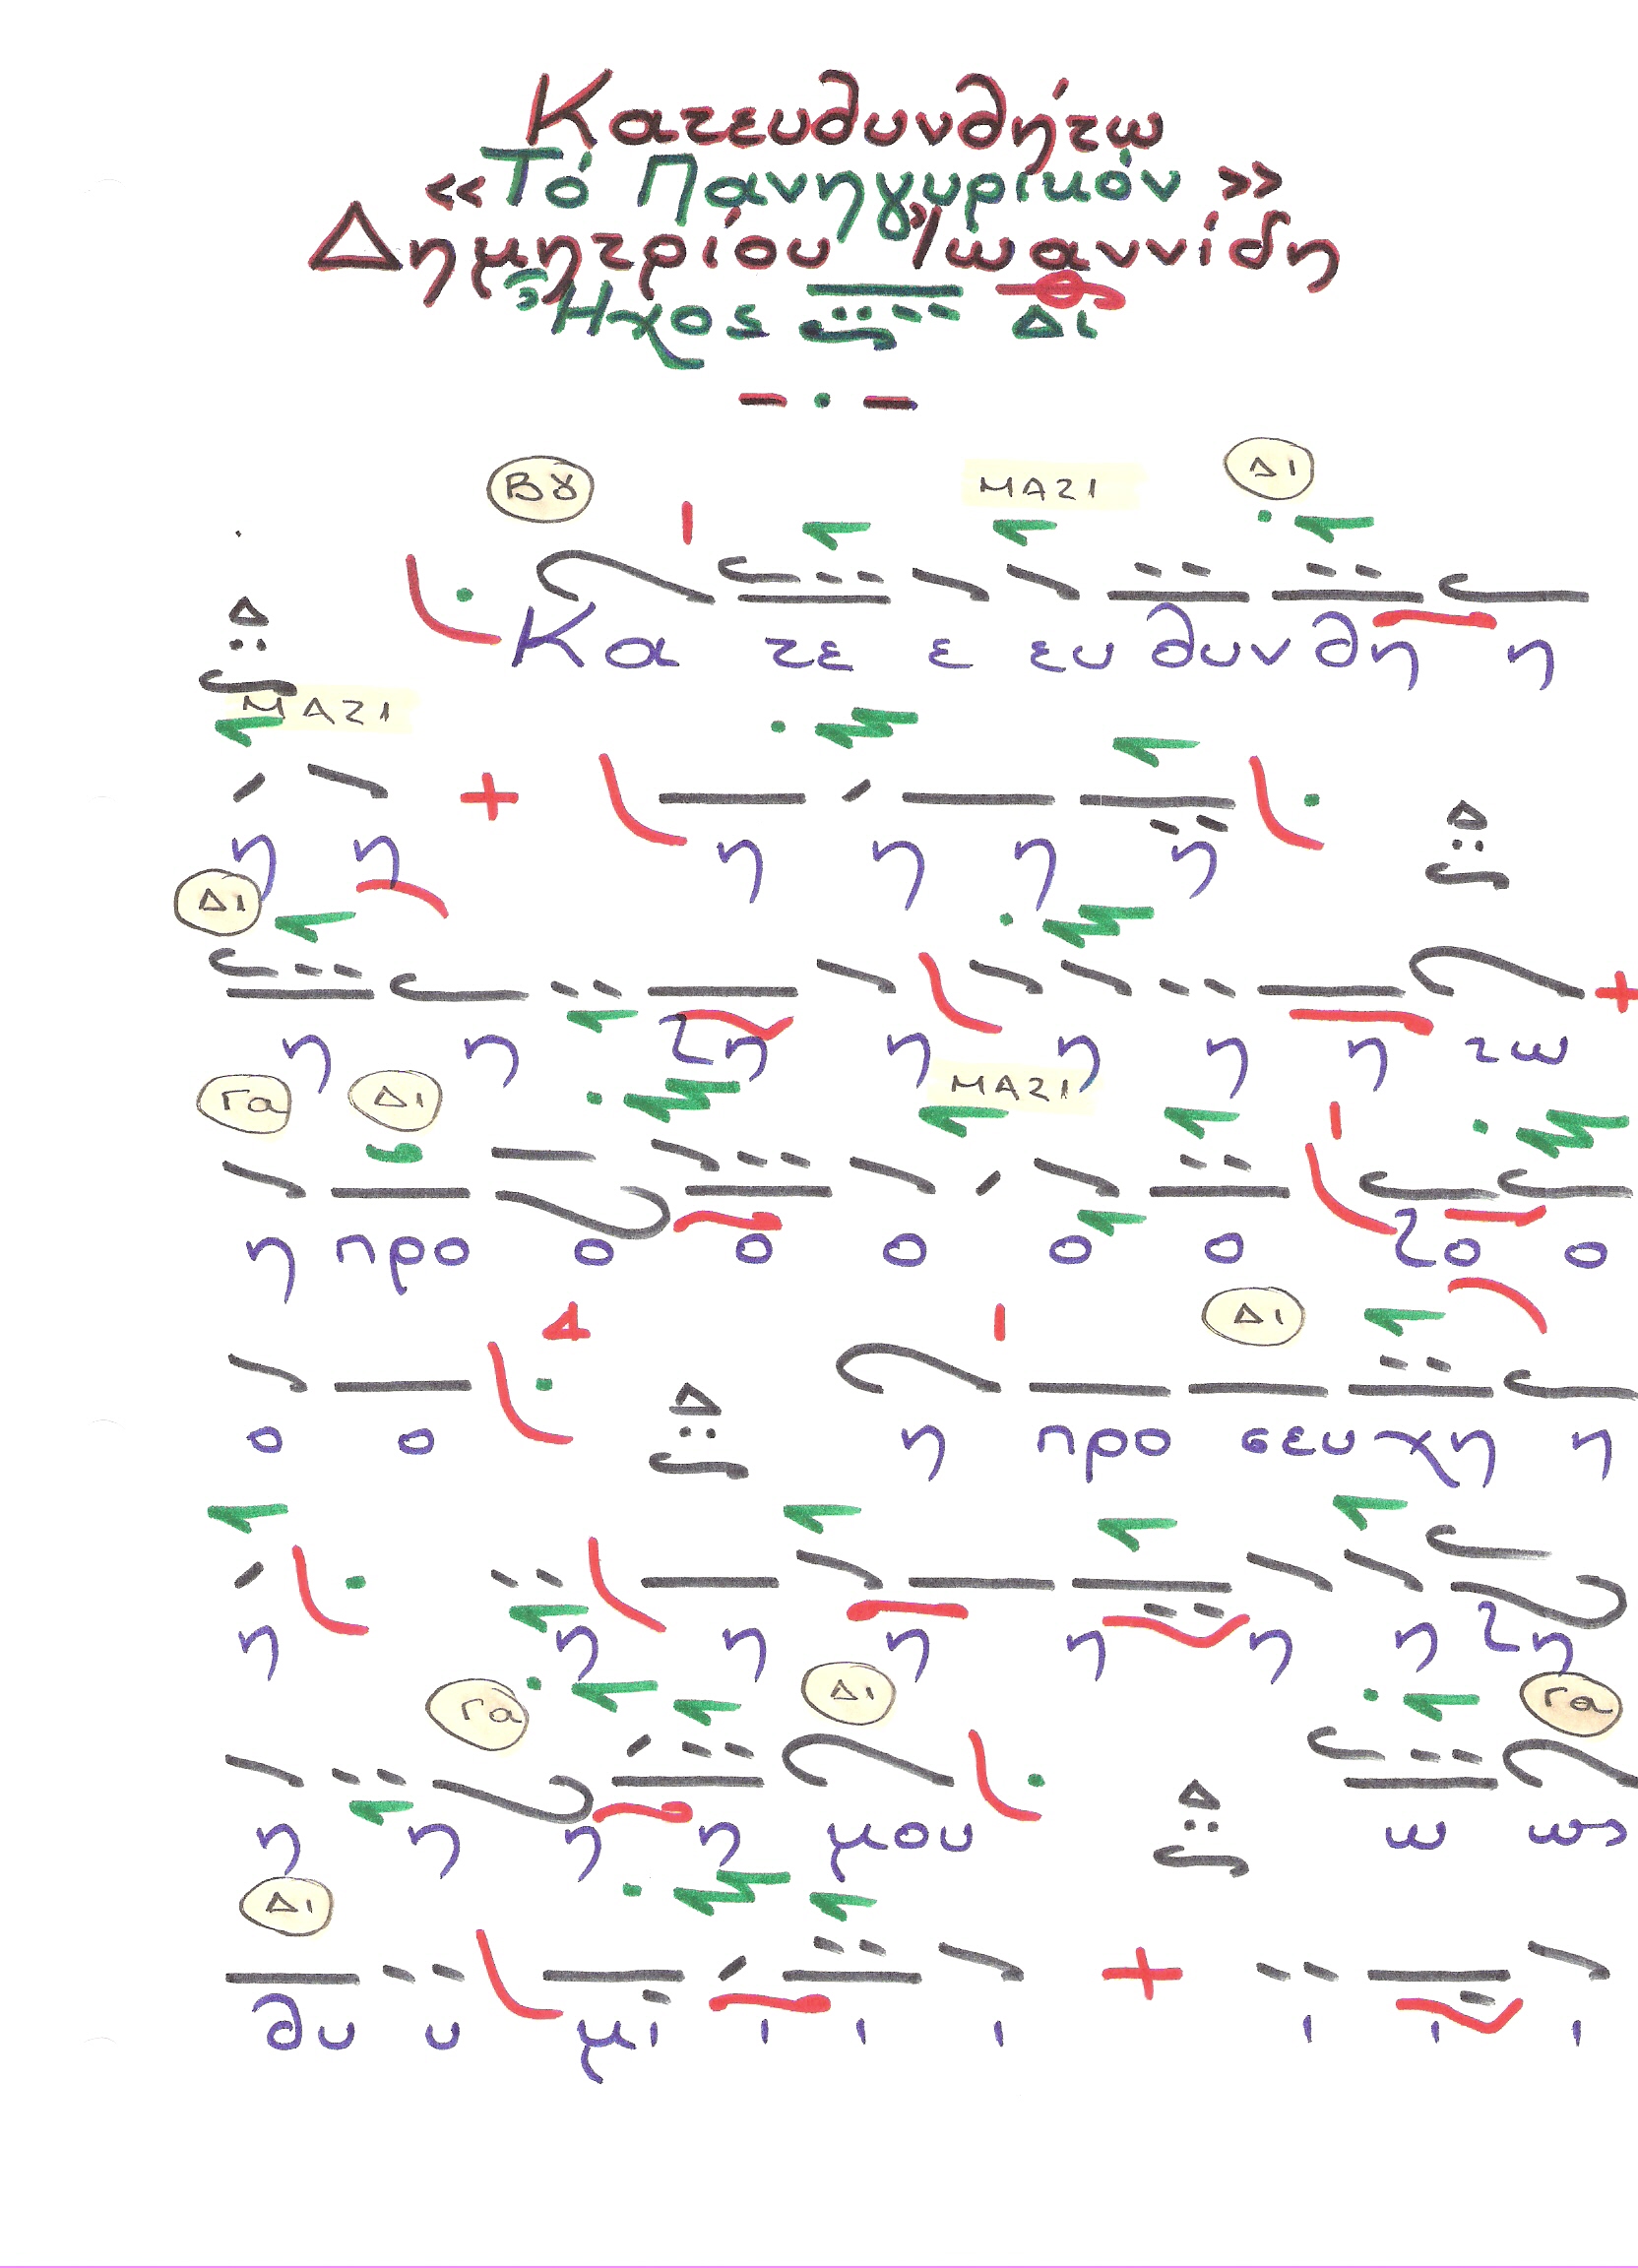 Κατευθυνθήτω
«Τό Πανηγυρικόν»
Δημητρίου Ἰωαννίδη
Ἦχος Δι
Βγ ΜΑΖΙ Δι
Δ Κα τε ε ευ θυν θη η
ΜΑΖΙ
η η η η η η Δ
Δι
η η ζη η η η η τω
Γα Δι ΜΑΖΙ
η προ ο ο ο ο ο ζο ο
4 Δι
ο ο Δ η προ σευ χη η
η η η η η η η ζη
Γα Δι Γα
η η η η μου Δ ω ως
Δι
θυ υ μι ι ι ι ι ι ι